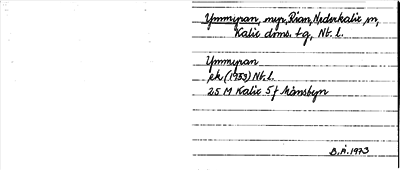 Ymmyran, myr, Rian, Nederkalix sn,
Kalix dms. tg, Nb. l.
Ymmyran
ek (1953) Nb. l.
25 M Kalix 5 f Månsbyn
B.Å. 1973